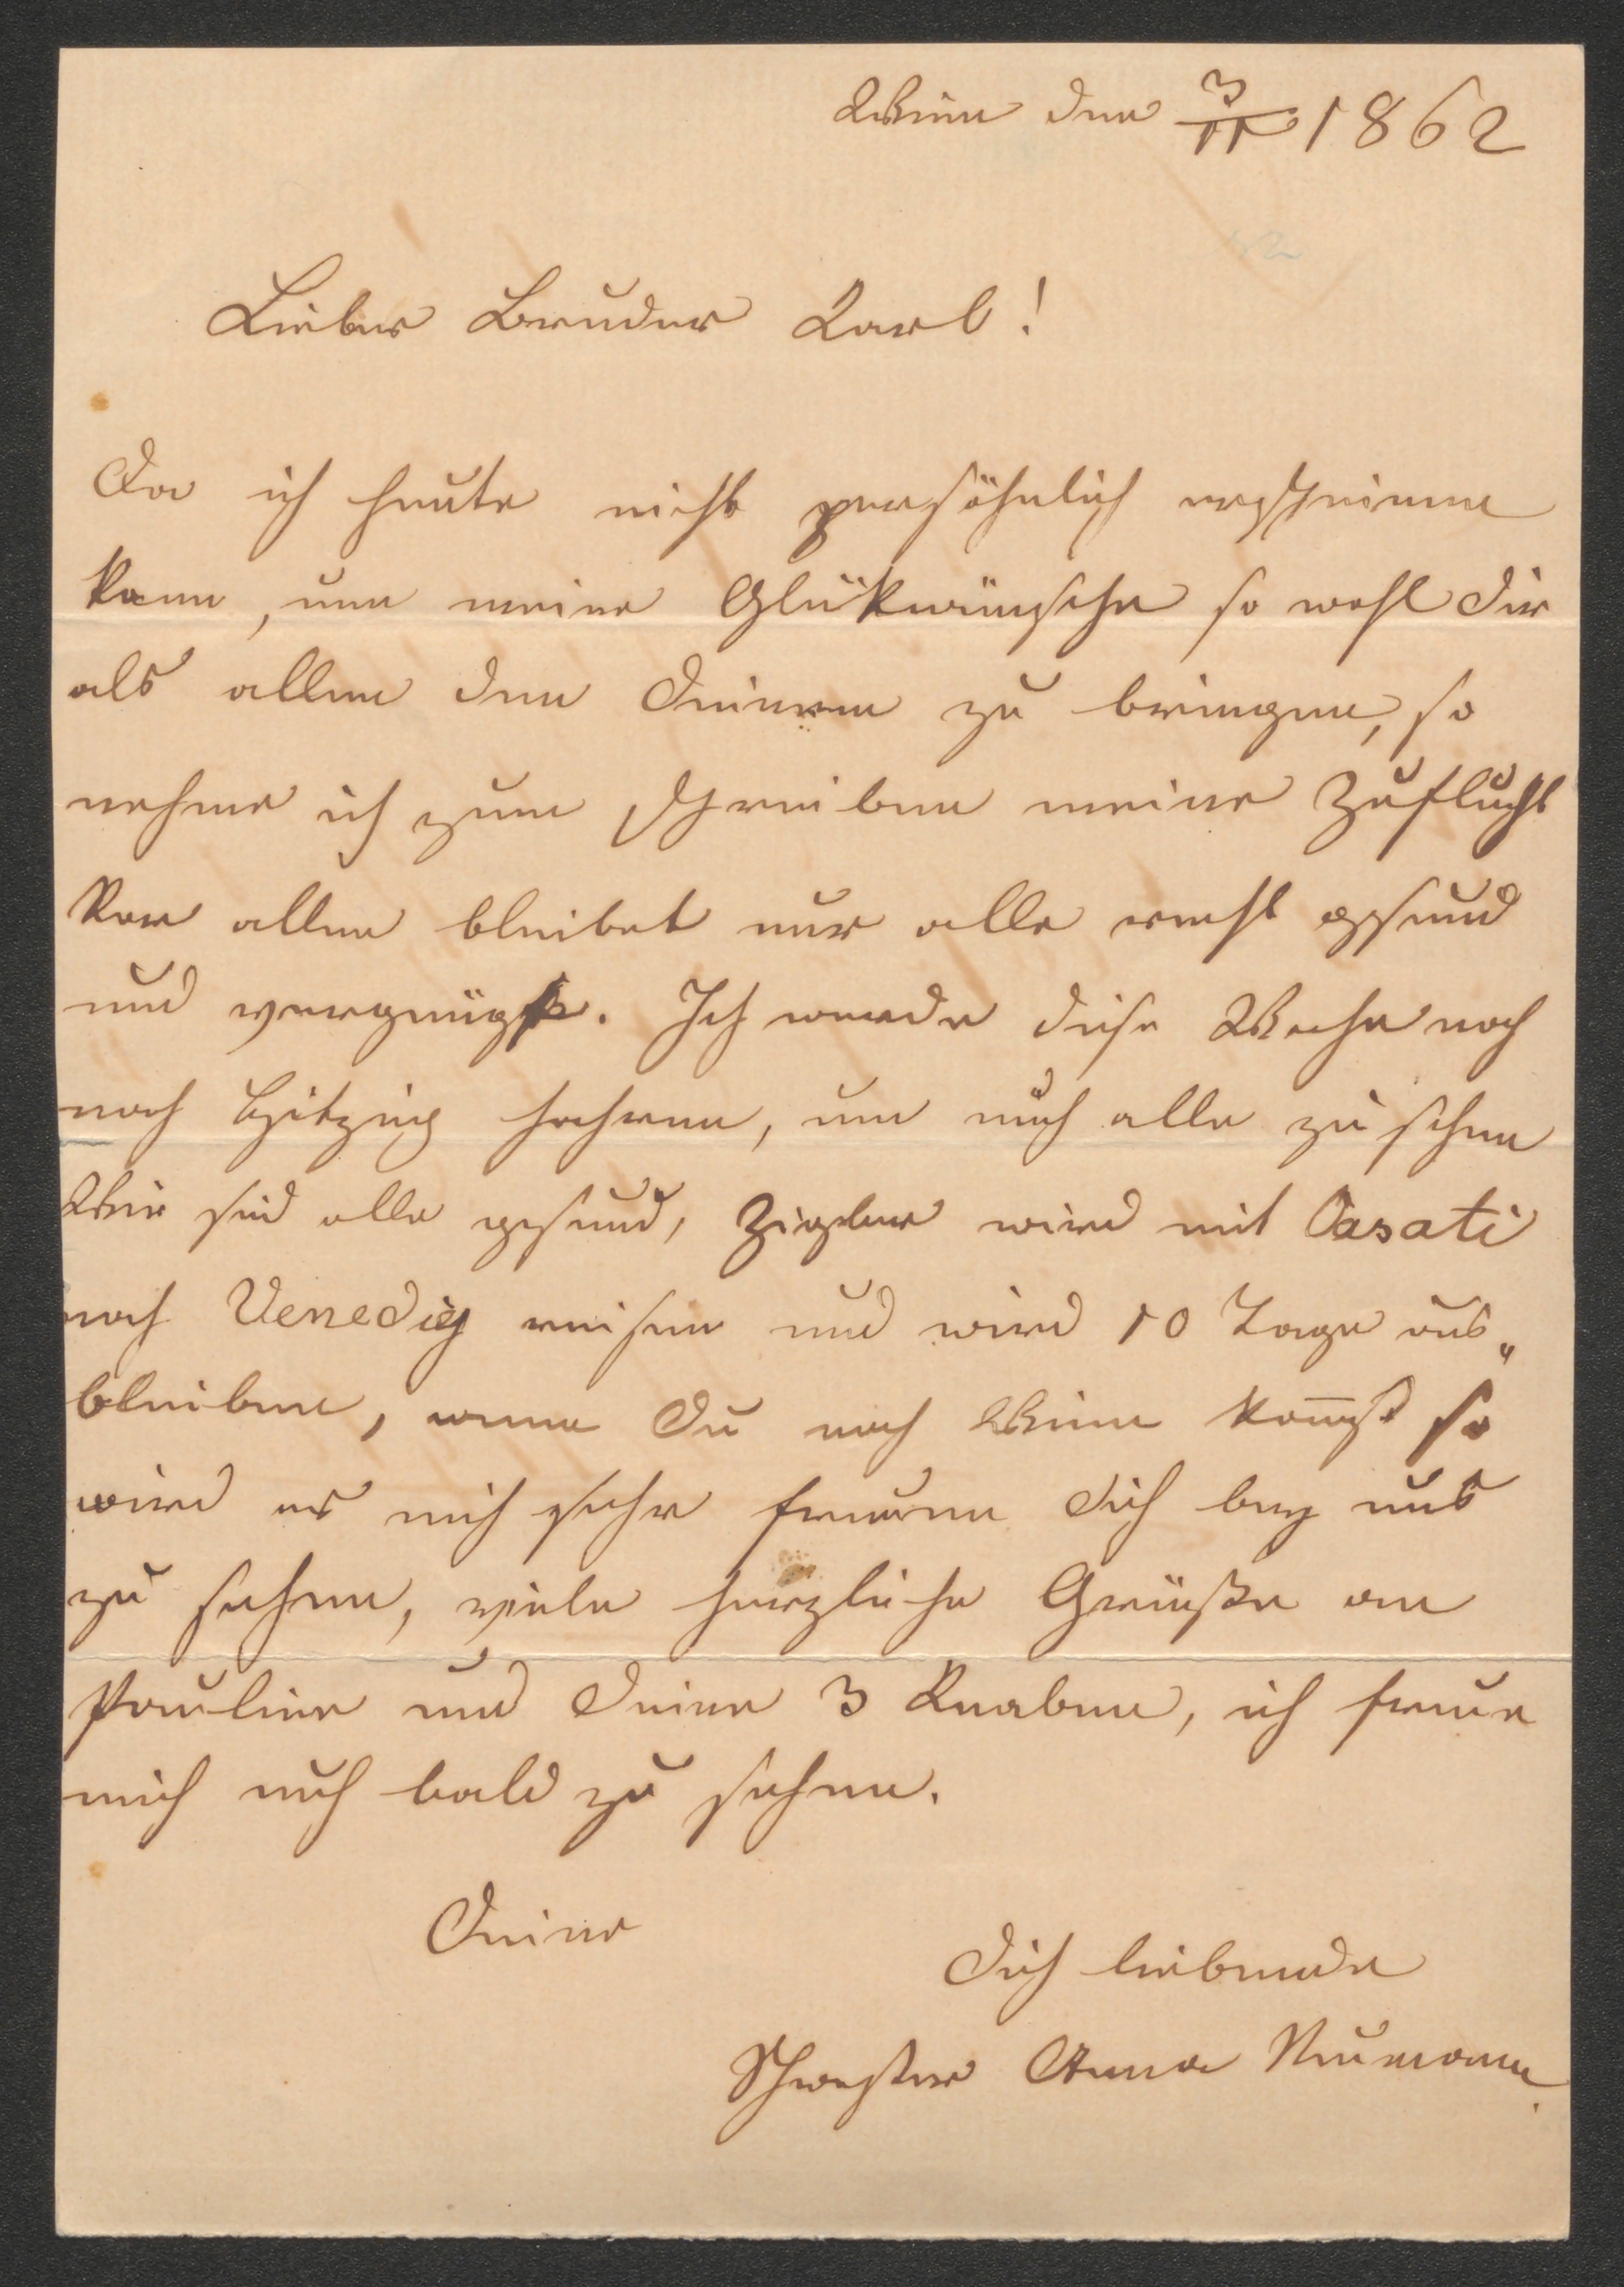 Wien den 3/11 1862
Lieber Bruder Karl!
Da ich heute nicht persöhnlich erscheinen
kann, um meine Glükwünsche so wohl dir
als allen den Deinen zu bringen, so
nehme ich zum Schreiben meine Zuflucht
Vor allem bleibet nur alle recht gesund
und vergnügt. Ich werde diese Woche noch
nach Hitzing fahren, um euch alle zu sehen
Wir sind alle gesund, Ziegler wird mit Casati
nach Venedig reisen und wird 10 Tage aus„
bleiben, wenn Du nach Wien kom̄st so
wird es mich sehr freuen dich bey uns
zu sehen, viele herzliche Grüße an
Pauline und Deine 3 Knaben, ich freue
mich euch bald zu sehen.
Deine
Dich liebende
Schwester Anna Neumann.